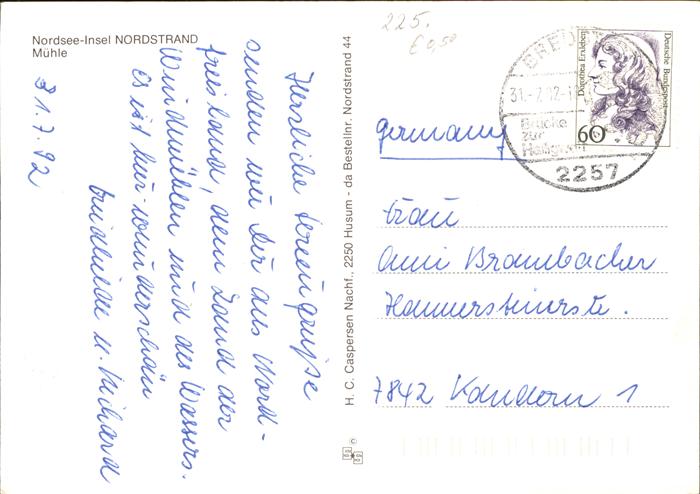 Nordsee-Insel NORDSTRAND
Mühle
31.7.92
Herzliche Feriengrüße
senden wir Dir aus Nord-
friesland, dem Land der
Windmühlen und des Wassers.
Es ist hier wunderschön
u. Richard
H. C. Caspersen Nachf., 2250 Husum - da Bestellnr. Nordstrand 44
225.
€ 0,50
31.-7.92-1
Brücke
zur
2257
Dorothea Erxleben
Deutsche Bundespost
60
Germany
Frau
Anni Brombacher
Hammersteinerstr.
7842 Kandern 1